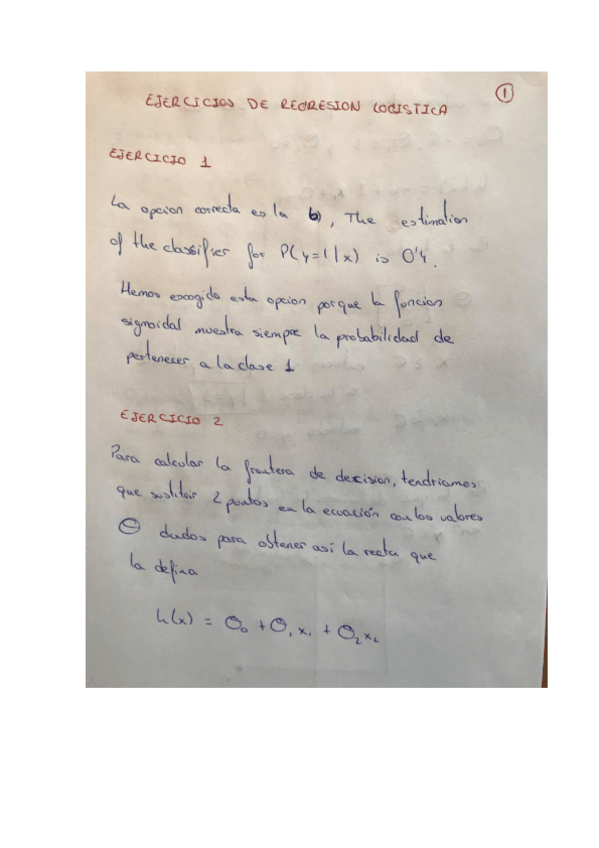 ①
EJERCICIOS DE REGRESION LOGISTICA
EJERCICIO 1
La opcion correcta es la b), The estimation
of the classifier for P(y=1|x) is 0'4.
Hemos escogido esta opcion porque la funcion
sigmoidal muestra siempre la probabilidad de
pertenecer a la clase 1
EJERCICIO 2
Para calcular la frontera de decision, tendriamos
que sustituir 2 puntos en la ecuación con los valores
Θ dados para obtener así la recta que
la defina
h(x) = Θ₀ + Θ₁ x₁ + Θ₂ x₂